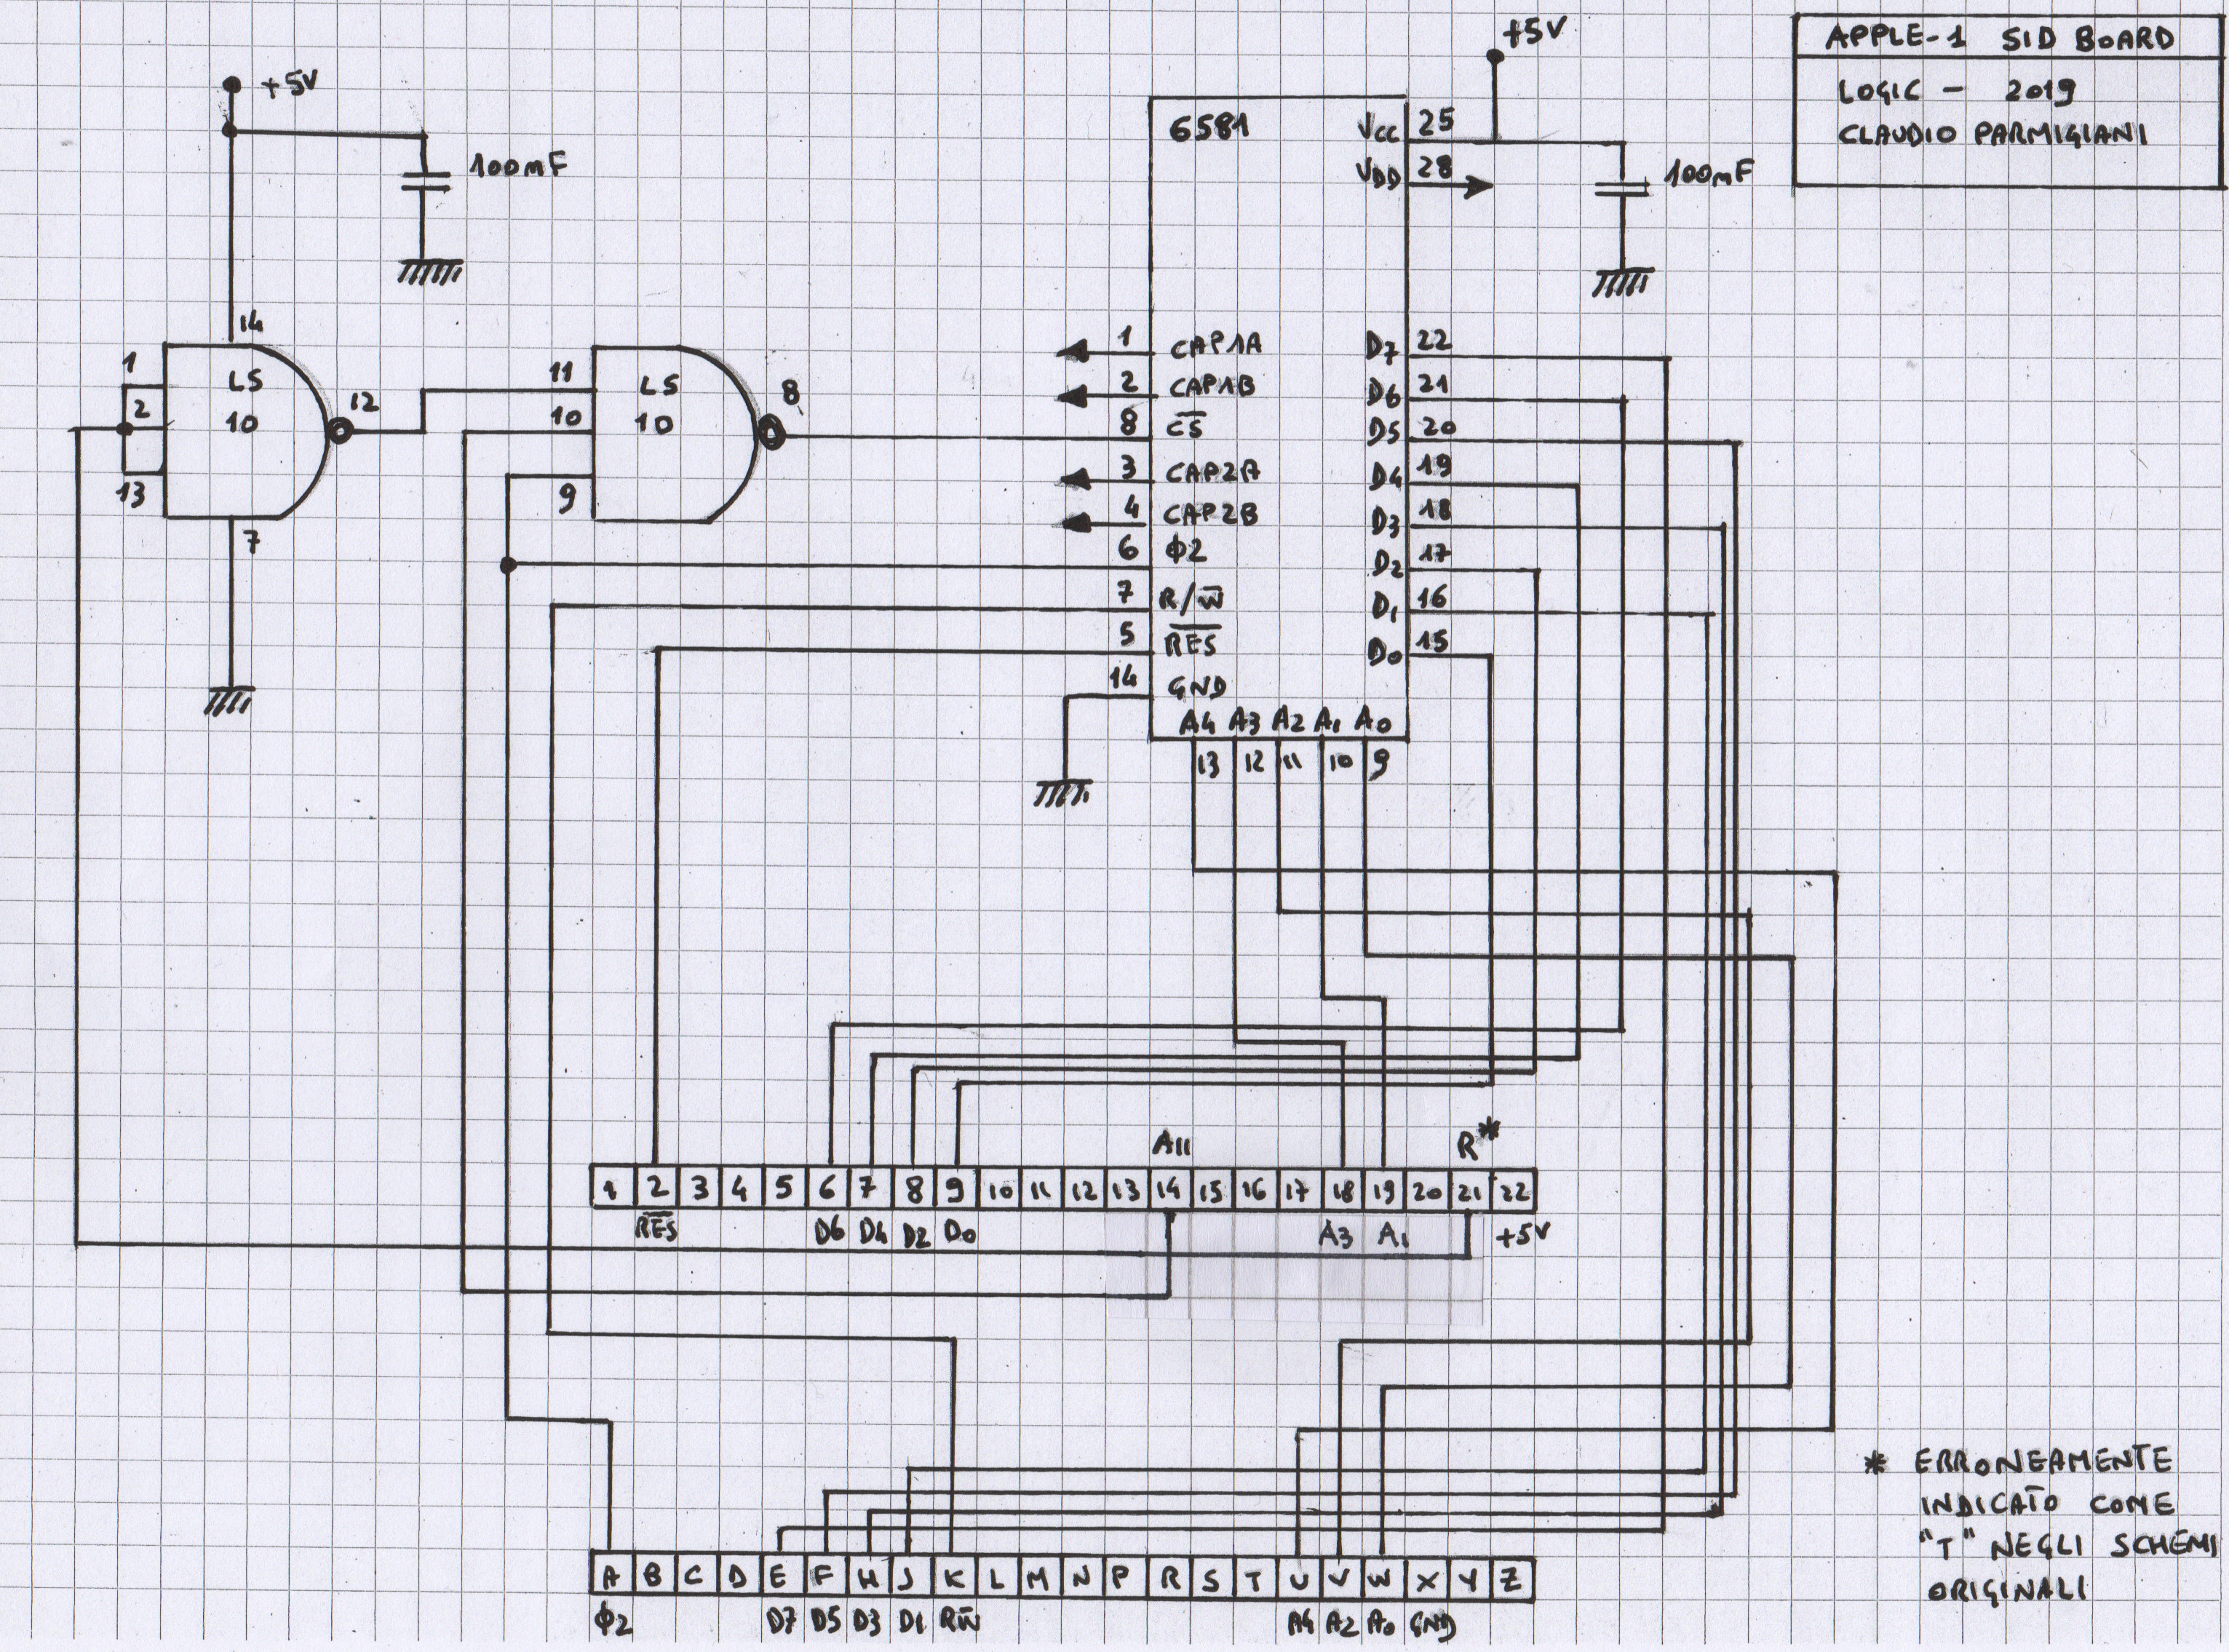 APPLE-1 SID BOARD
LOGIC - 2019
CLAUDIO PARMIGIANI
+5V
100mF
14
1
2
13
LS
10
12
7
11
10
9
LS
10
8
+5V
100mF
6581
VCC 25
VDD 28
1 CAP1A
2 CAP1B
8 C̅S̅
3 CAP2A
4 CAP2B
6 ϕ2
7 R/W̅
5 R̅E̅S̅
14 GND
D7 22
D6 21
D5 20
D4 19
D3 18
D2 17
D1 16
D0 15
A4 A3 A2 A1 A0
13 12 11 10 9
A11 R*
1 2 3 4 5 6 7 8 9 10 11 12 13 14 15 16 17 18 19 20 21 22
R̅E̅S̅ D6 D4 D2 D0 A3 A1 +5V
A B C D E F H J K L M N P R S T U V W X Y Z
ϕ2 D7 D5 D3 D1 RW̅ A4 A2 A0 GND
* ERRONEAMENTE
INDICATO COME
"T" NEGLI SCHEMI
ORIGINALI